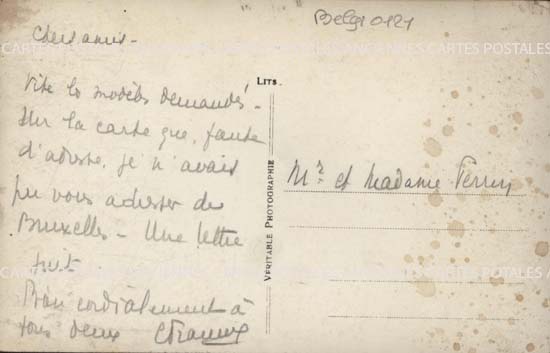 Belgi 0121
Chers amis-
LITS.
Vite les modèles demandés -
Sur la carte que, faute
d'adresse, je n'avais
pu vous adresser de
Bruxelles - Une lettre
suit
Bien cordialement à
tous deux
Mr et Madame Perrin
VÉRITABLE PHOTOGRAPHIE
ANCIENNES CARTES POSTALES